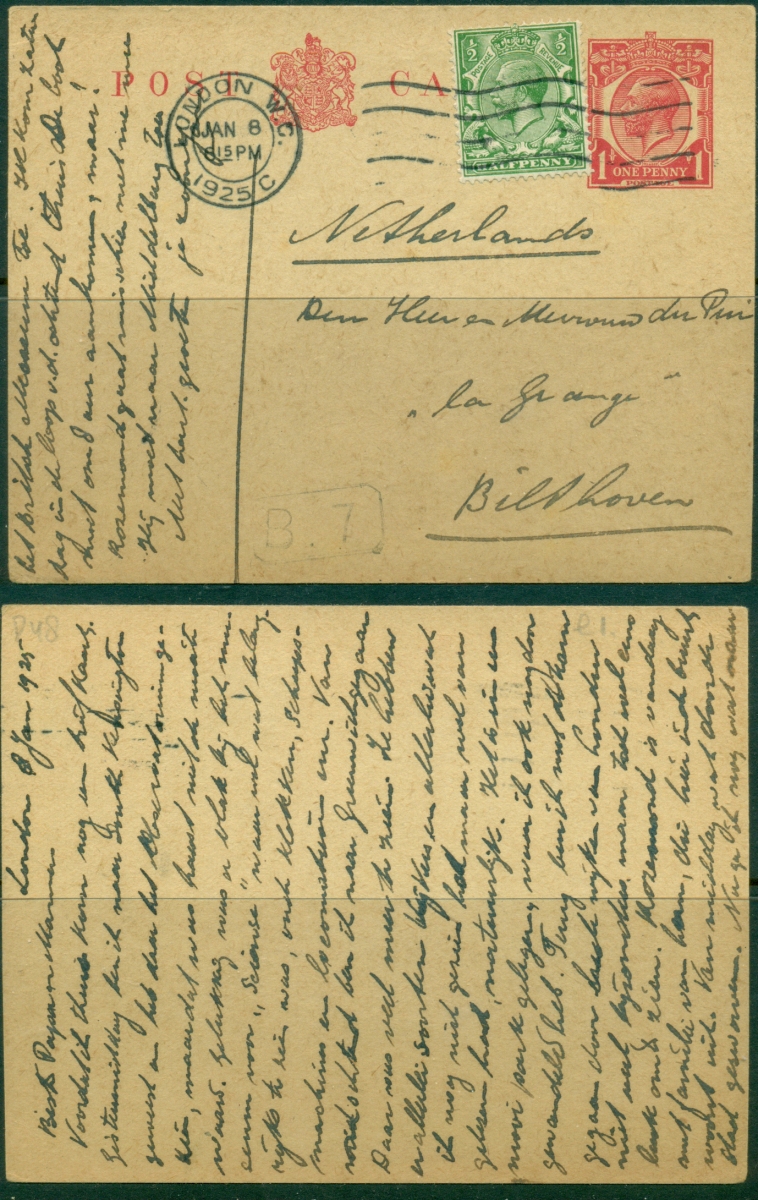 POST CARD
LONDON W.C.
JAN 8
8 15 PM
1925 C
½ ½
POSTAGE REVENUE
HALFPENNY
1 ONE PENNY 1
POSTAGE
Netherlands
Den Heer en Mevrouw du Pui
"la Grange"
Bilthoven
B. 7
het British Museum toe. Ik kom Zater
dag in de loop v.d. ochtend thuis de boot
moet om 8 uur aankomen, maar!
Rosemond gaat misschien met me mee
Hij moet naar Middelburg toe
Met hart. groeten je
P48
R1
London 8 Jan 1925
Beste Papa en Mama
Voordat ik thuis kom nog een briefkaart.
Gistermiddag ben ik naar South Kensington
geweest en heb daar het Observatorium ge-
zien, maar dat was haast niet de moeite
waard. Gelukkig was er vlak bij het mu-
seum voor "Science" waar wel wat belang-
rijks te zien was, oude klokken, scheeps-
machines en locomotieven enz. Van
ochtend ben ik naar Greenwich gegaan
Daar was veel meer te zien. Ze hebben
er allerlei soorten kijkers en allerlei wat
ik nog niet gezien had maar wel van
gelezen had, natuurlijk. Het is in een
mooi park gelegen, waar ik ook nog door
gewandeld heb. Terug ben ik met de tram
gegaan door leelijke wijken van Londen
niet veel bijzonders, maar toch wel eens
leuk om te zien. Rosemond is vandaag
met familie van hem, die hier in de buurt
woont uit. Van middag wat door de
stad gezworven. Nu ga ik nog wat naar